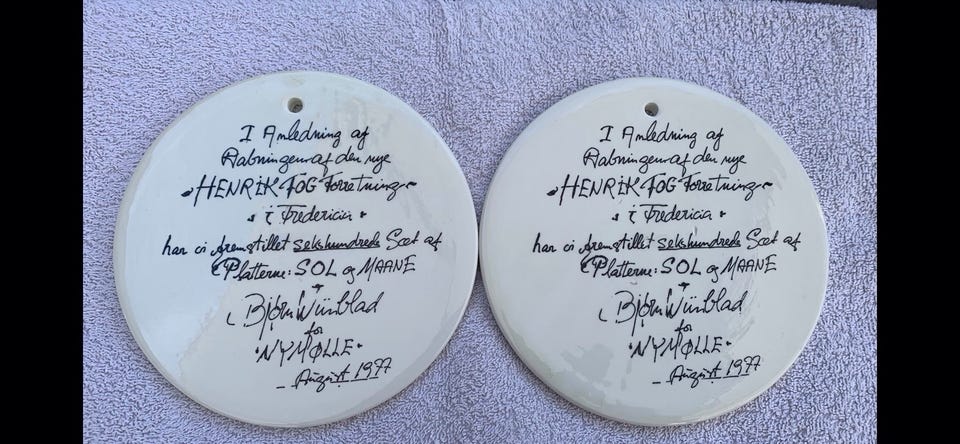 I Anledning af
Aabningen af den nye
HENRIK FOG Forretning
i Fredericia
har vi fremstillet sekshundrede Sæt af
Platterne: SOL og MAANE
Bjørn Wiinblad
for
NYMØLLE
- August 1977
I Anledning af
Aabningen af den nye
HENRIK FOG Forretning
i Fredericia
har vi fremstillet sekshundrede Sæt af
Platterne: SOL og MAANE
Bjørn Wiinblad
for
NYMØLLE
- August 1977